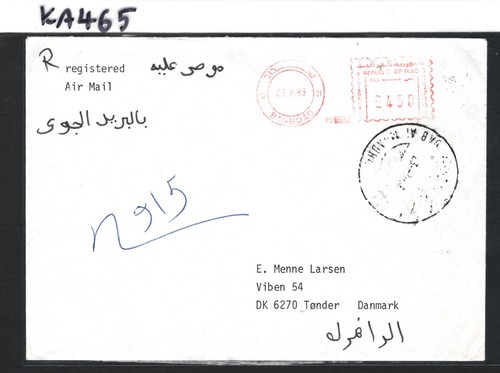 KA465
R registered موصى عليه
Air Mail
بالبريد الجوى
REPUBLIC OF IRAQ
450
BAGHDAD
n 915
E. Menne Larsen
Viben 54
DK 6270 Tønder Danmark
الدانمرك